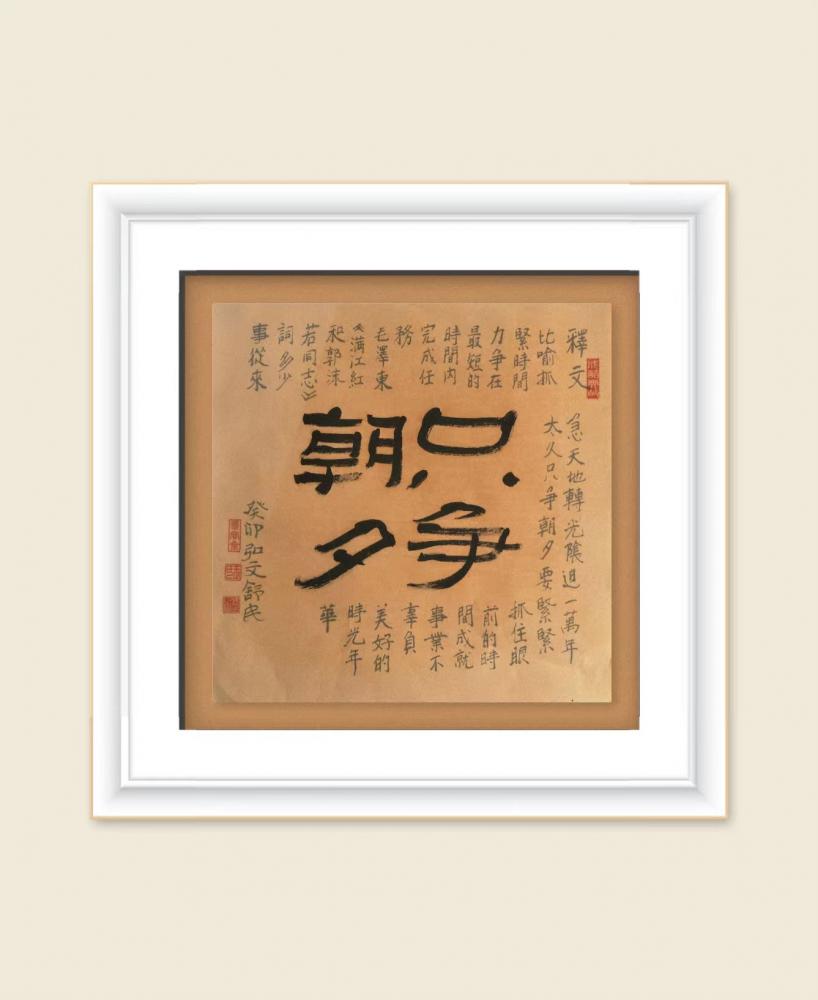 只争
朝夕
釋文
比喻抓
緊時間
力争在
最短的
時間内
完成任
務
毛澤東
《满江红
和郭沫
若同志》
詞多少
事從來
急天地轉光陰迫一萬年
太久只争朝夕要緊緊
抓住眼
前的時
間成就
事業不
辜負
美好的
時光年
華
癸卯弘文舒民